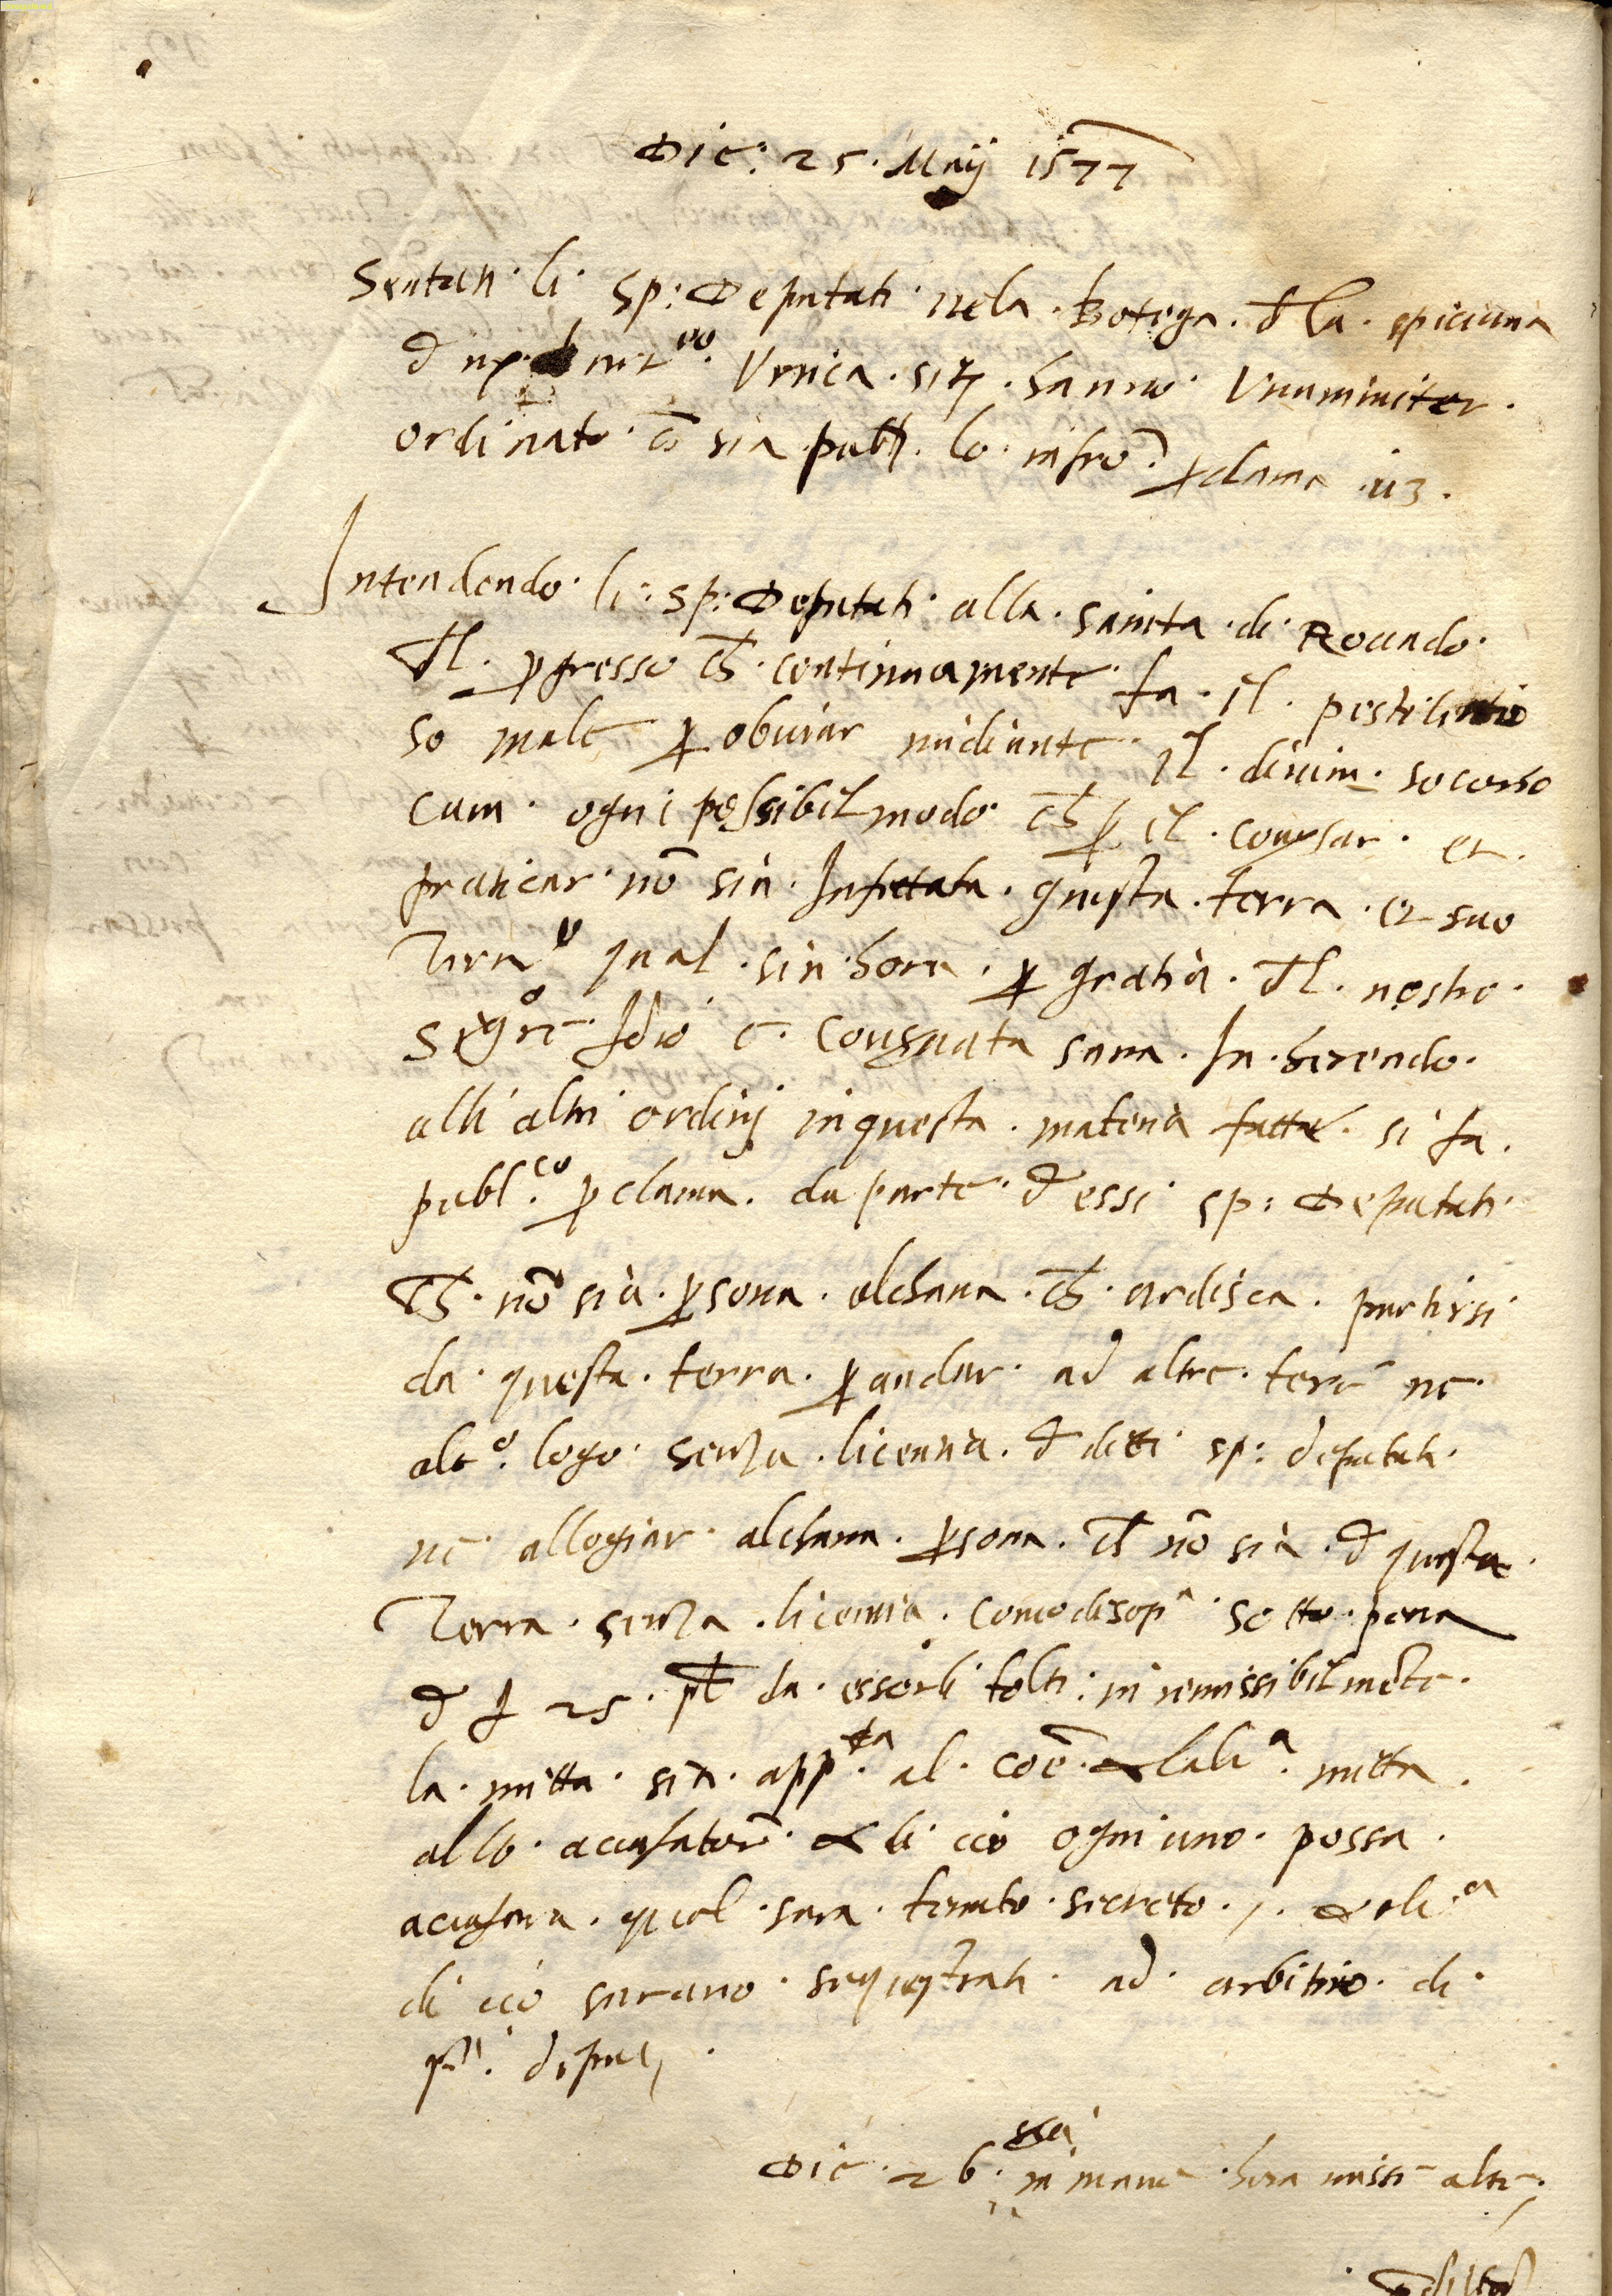 Die: 25. Maij 1577
Sentati li sp: Deputati nela Botega dla spiciaria
d Urnica
ordinato sia pub. lo infro pclama uz.
Intendendo li sp: Deputati alla sanita di Rovado
dl pgresso ch continuamente fa il pestilentio
so male p obviar mediante il divim socorso
cum ogni possibil modo ch p il conversar et
praticar nō sia Infettata questa terra et suo
Terro qual sin hora p gratia dl nostro
Sigre Idio e consvata sana In herendo
alli altri ordinj in questa materia fatta si fa
publ.co pclama da parte d essi sp: Deputati
ch nō sia psona alchana ch ardisca partirsi
da questa terra p andar ad altre tere ne
alc.o logo senza licentia d detti sp: deputati
ne allogiar alchana psona ch nō sia d questa
Terra senza licentia come disopa sotto pena
d 25 pl da esserli tolti inremissibilmēte
la mitta sia app.ta al coē & lalt.a mitta
allo acusatore & di cio ogni uno possa
acusare qual sara tenuto secreto & olt.a
di cio sarano sequestrati ad arbitrio di
deput
Die 26 in mane hora missē